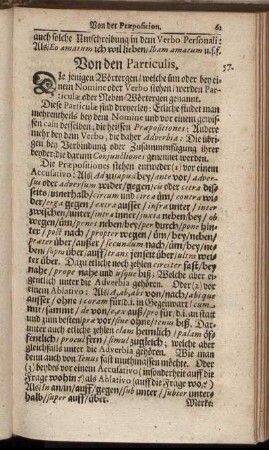 Von der Præposition. 61
auch solche Umschreibung in dem Verbo Personali:
Als/ Eo amatum ich wil lieben; Ibam amatum u.s.f.
Von den Particulis. 37.
Die jenigen Wörtergen/ welche üm oder bey ei
nem Nomine oder Verbo stehen/ werden Par
ticulæ oder Neben-Wörtergen genannt.
Diese Particulæ sind dreyerley: Etliche findet man
mehrentheils bey dem Nomine und vor einem gewis
sen casu desselben, die heissen Præpositiones: Andere
mehr bey dem Verbo, die daher Adverbia: Die übri
gen bey Verbindung oder Zusammenfügung ihrer
beyder, die darum Conjunctiones genennet werden.
Die Præpositiones stehen entweder (1) vor einem
Accusativo: Als/ Ad zu apud bey/ ante vor/ adver-
sus oder adversum wider/ gegen/ cis oder citra dis-
seits/ innerhalb/ circum und circa üm/ contra wi-
der/ erga gegen/ extra ausser/ infra unter/ inter
zwischen/ unter/ intra inner/ juxta neben/ bey/ ob
wegen/ üm/ penes neben/ bey/ per durch/ pone hin-
ter/ post nach/ propter wegen/ üm/ bey/ neben/
præter über/ ausser/ secundum nach/ üm/ bey/ ne-
ben/ supra über/ auff/ trans jenseit/ über/ ultra wei-
ter über. Dazu etliche noch zehlen circiter fast/ bey
nahe/ prope nahe und usque biß; Welche aber ei-
gentlich unter die Adverbia gehören. Oder (2) vor
einem Ablativo: Als/ a, ab, abs von/ nach/ absque
ausser/ ohne/ coram für/ d.i. in Gegenwart/ cum
mit/ sammt/ de von/ e, ex auß/ pro für/ d.i. an statt
und am besten/ præ vor/ sine ohne/ tenus biß. Dar-
unter auch etliche zehlen clam heimlich/ palam öf-
fentlich/ procul fern/ simul zugleich; welche aber
gleichfalls unter die Adverbia gehören. Wie man
denn auch von Tenus fast muthmassen möchte. Oder
(3) beydes vor einem Accusativo (insonderheit auff die
Frage wohin?) als Ablativo (auff die Frage wo?)
Als/ In an/ in/ auff/ gegen/ sub unter/ subter unter-
halb/ super auff/ über.
Merke: